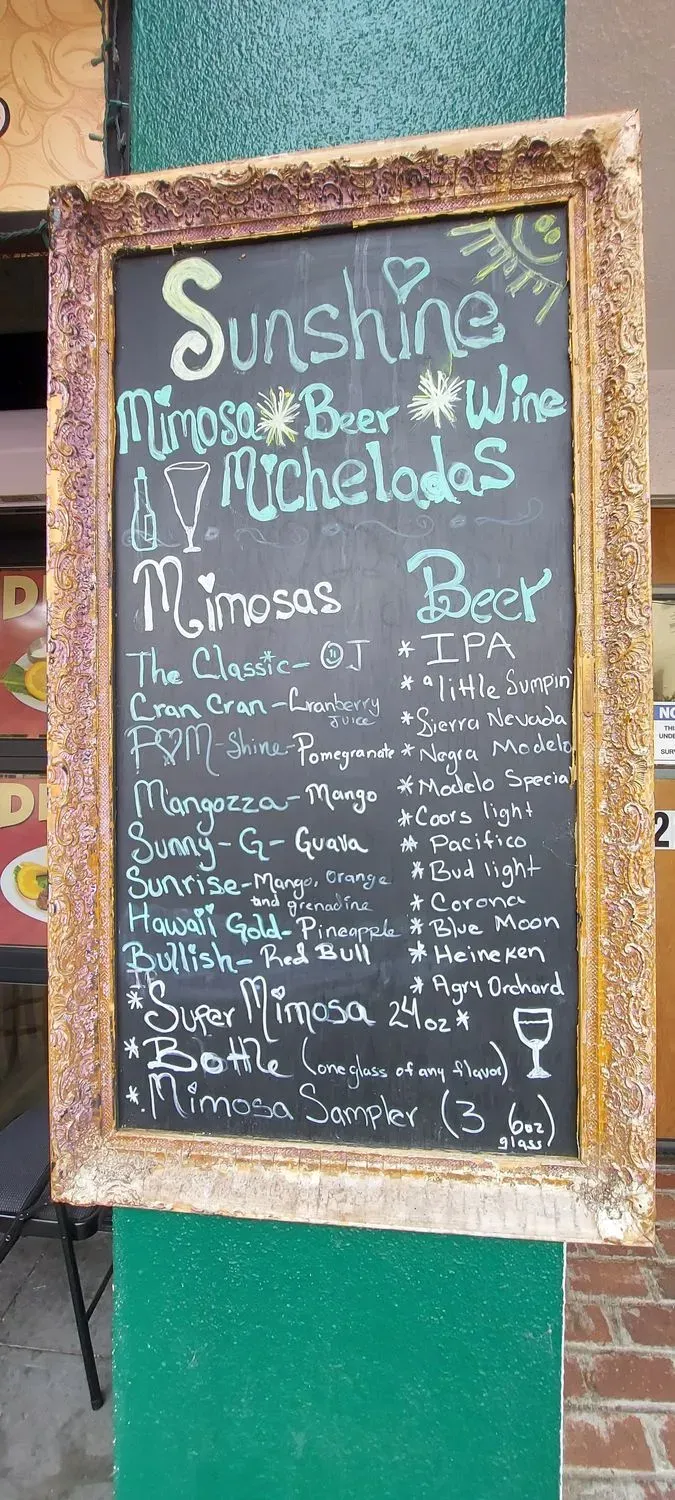 Sunshine
Mimosa Beer Wine
Micheladas
Mimosas
The Classic - OJ
Cran Cran - Cranberry
Juice
POM-Shine - Pomegranate
Mangozza - Mango
Sunny - G - Guava
Sunrise - Mango, Orange
and grenadine
Hawaii Gold - Pineapple
Bullish - Red Bull
Beer
* IPA
* a little Sumpin'
* Sierra Nevada
* Negra Modelo
* Modelo Special
* Coors light
* Pacifico
* Bud light
* Corona
* Blue Moon
* Heineken
* Agry Orchard
* Super Mimosa 24oz *
* Bottle (one glass of any flavor)
* Mimosa Sampler (3 6oz
glass)
D
D
NO
THI
UNDE
SURV
2